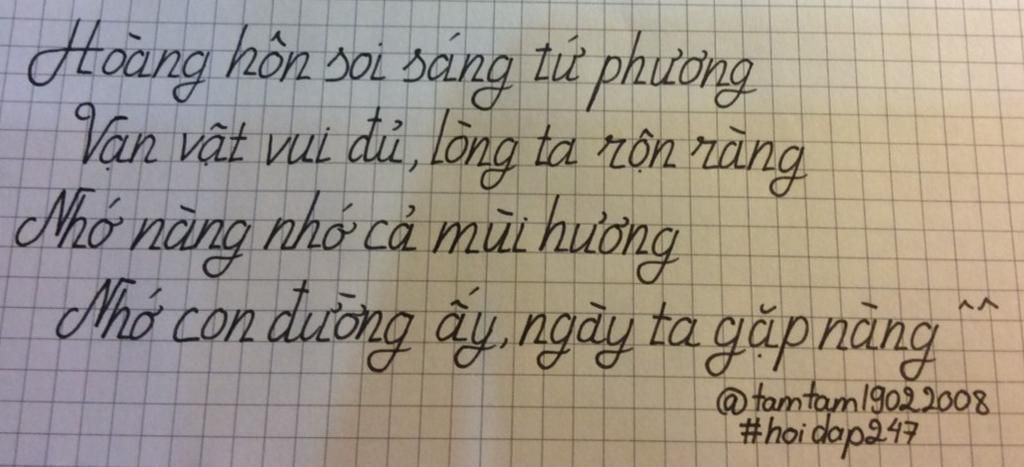 Hoàng hôn soi sáng tứ phương
Vạn vật vui đủ, lòng ta rộn ràng
Nhớ nàng nhớ cả mùi hương
Nhớ con đường ấy, ngày ta gặp nàng ^^
@tamtam19022008
#hoidap247